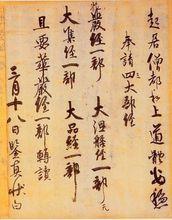 起居僧都和上道體安穩
奉請四大部經
華嚴經一部 大涅槃經一部
大集經一部 大品經一部
且要華嚴經一部轉讀
三月十八日鑒真狀白